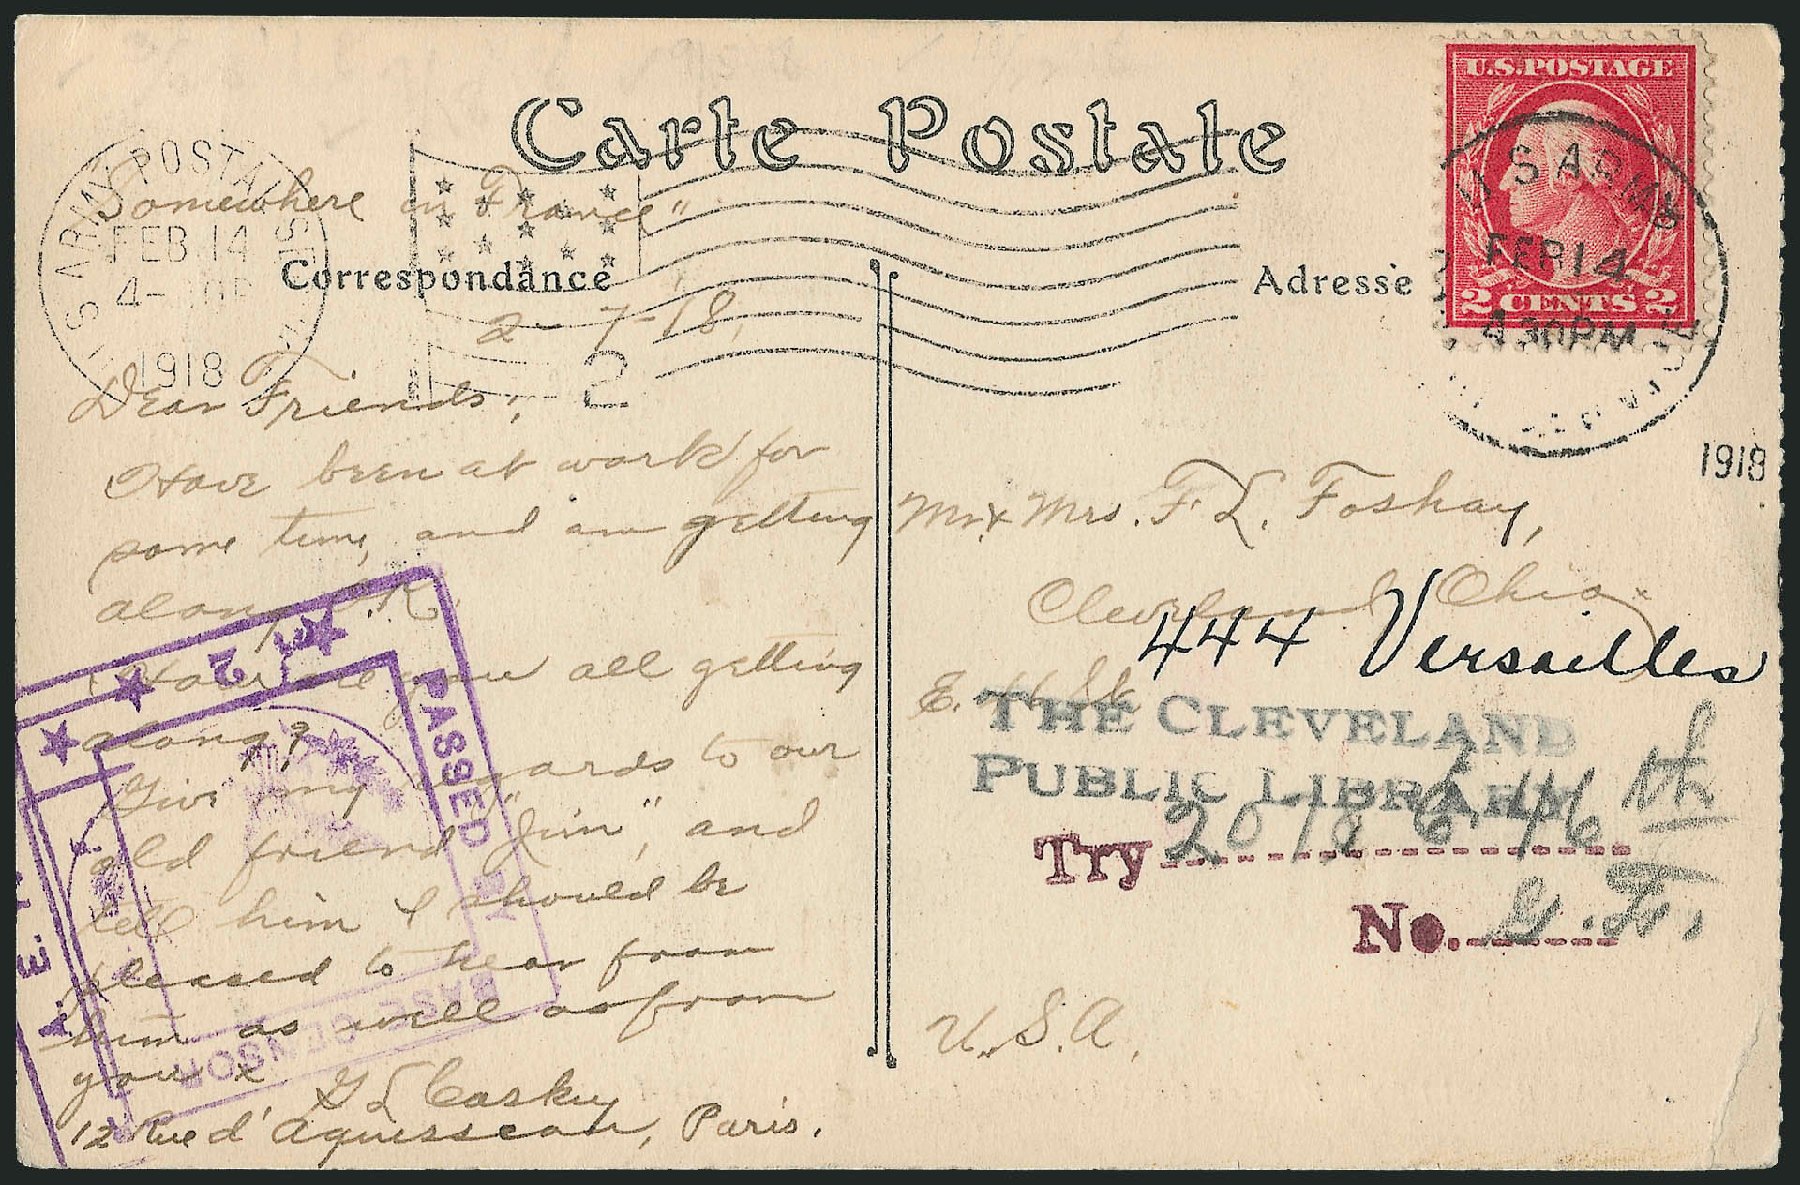 Carte Postale
U.S. POSTAGE
2 CENTS 2
U S ARMY
FEB 14
4 30PM
1918
U S ARMY POSTAL SE
FEB 14
4-
1918
2
Somewhere in France"
Correspondance
Adresse
2-7-18,
Dear Friends:
Have been at work for
some time, and am getting
along O.K.
How are you all getting
along?
Give my regards to our
old friend "Jim", and
tell him I should be
pleased to hear from
him as well as from
you &
G L Caskey
12 Rue d'Aguesseau, Paris.
Mr. & Mrs. F. L. Foshay,
Cleveland Ohio
444 Versailles
E.
THE CLEVELAND
PUBLIC LIBRARY
Try 2010 E. 46 th
No.
U.S.A.
PASSED BY
BASE CENSOR
A.E.F.